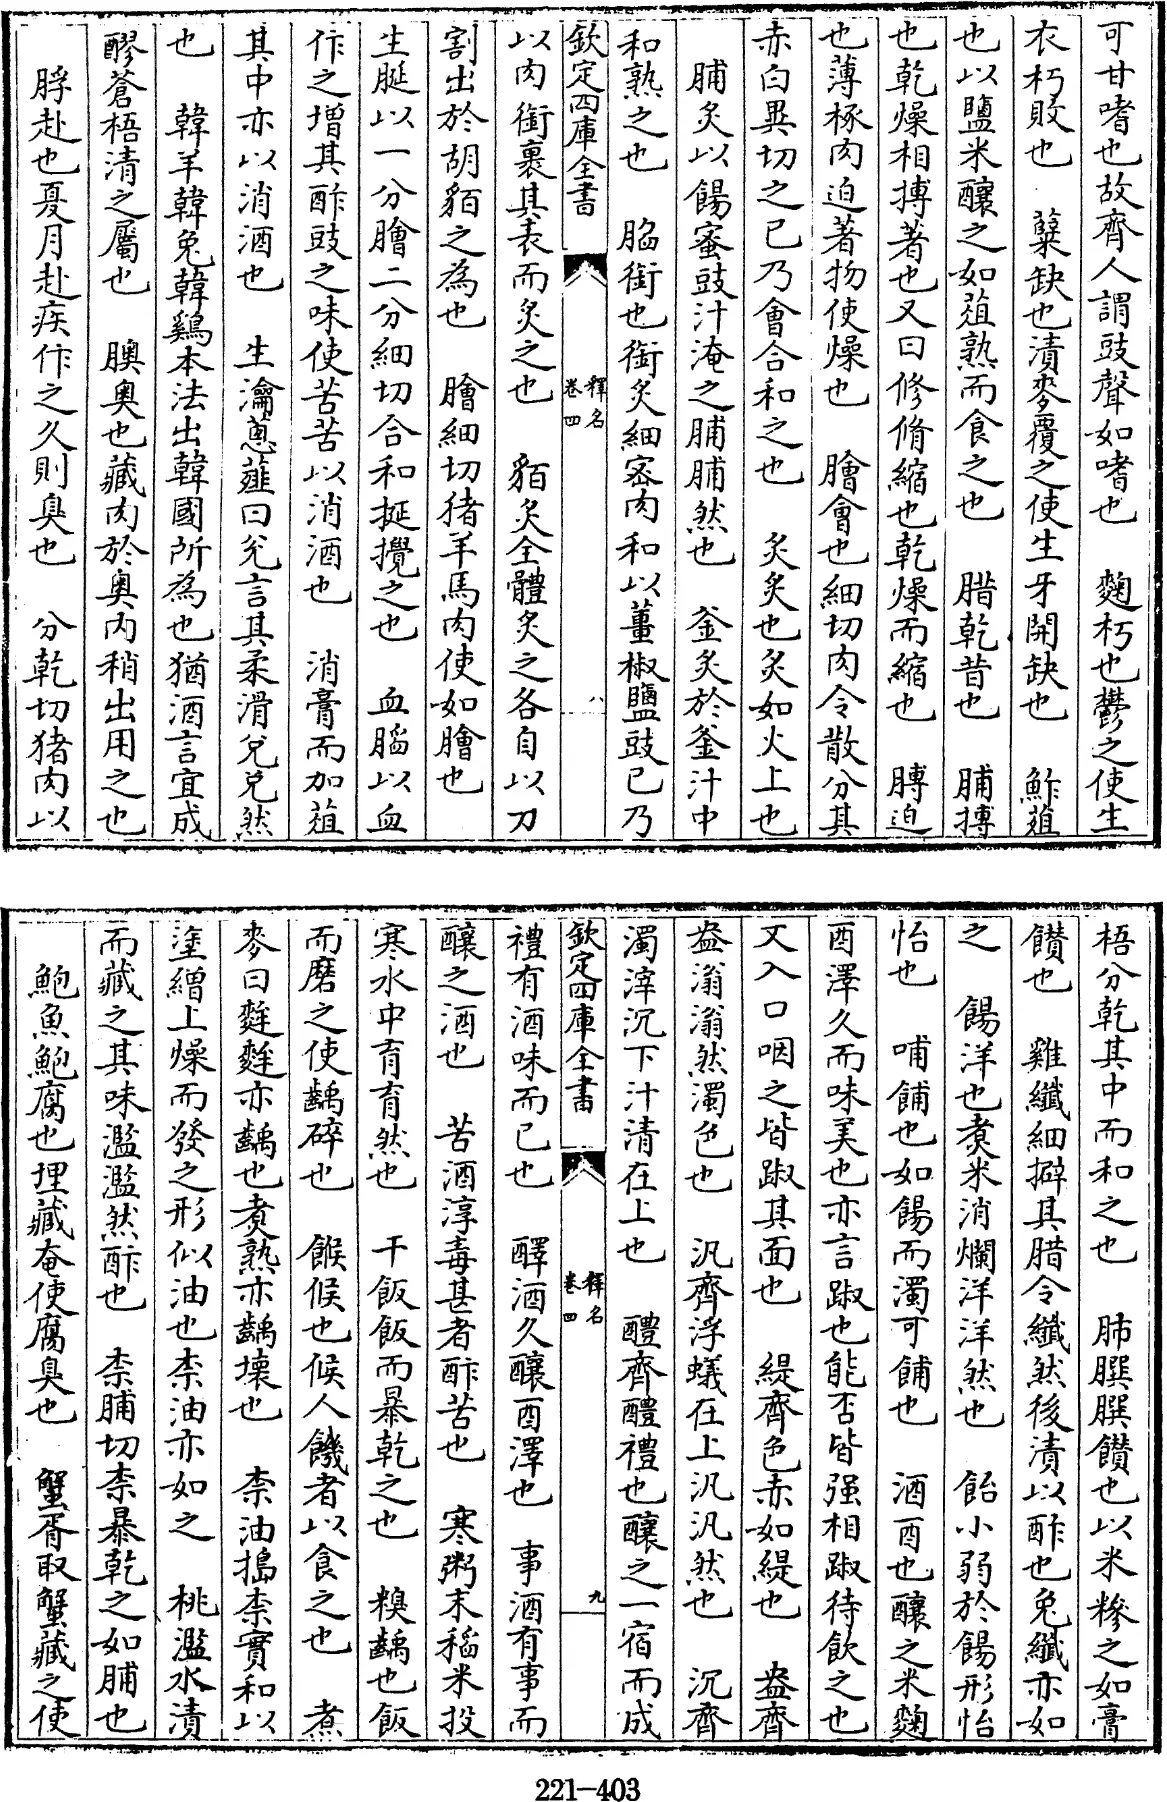 可甘嗜也故齊人謂豉聲如嗜也　麴朽也鬱之使生
衣朽敗也　糱缺也漬麥覆之使生牙開缺也　鮓葅
也以鹽米釀之如葅熟而食之也　腊乾昔也　脯搏
也乾燥相搏著也又曰修脩縮也乾燥而縮也　膊迫
也薄椓肉迫著物使燥也　膾會也細切肉令散分其
赤白異切之已乃會合和之也　炙炙也炙如火上也
脯炙以餳蜜豉汁淹之脯脯然也　釜炙於釜汁中
和熟之也　脂銜也銜炙細宻肉和以薑椒鹽豉已乃
欽定四庫全書
釋名
卷四
八
以肉銜裹其表而炙之也　貊炙全體炙之各自以刀
割出於胡貊之為也　膾細切猪羊馬肉使如膾也
生脡以一分膾二分細切合和挻攪之也　血䐉以血
作之增其酢豉之味使苦苦以消酒也　消膏而加葅
其中亦以消酒也　生瀹蔥薤曰兊言其柔滑兊兊然
也　韓羊韓兔韓鷄本法出韓國所為也猶酒言宜成
醪蒼梧清之屬也　腴奥也藏肉於奥内稍出用之也
脬赴也夏月赴疾作之久則臭也　分乾切猪肉以
梧分乾其中而和之也　肺䐣䐣饡也以米糝之如膏
饡也　雞纖細擗其腊令纖然後漬以酢也兔纖亦如
之　餳洋也煑米消爛洋洋然也　飴小弱於餳形怡
怡也　哺餔也如餳而濁可餔也　酒酉也釀之米麴
酉澤久而味美也亦言踧也能否皆强相踧待飲之也
又入口咽之皆踧其面也　緹齊色赤如緹也　盎齊
盎滃滃然濁色也　汎齊浮蟻在上汎汎然也　沉齊
濁滓沉下汁清在上也　醴齊醴禮也釀之一宿而成
欽定四庫全書
釋名
卷四
九
禮有酒味而已也　醳酒久釀酉澤也　事酒有事而
釀之酒也　苦酒淳毒甚者酢苦也　寒粥末稻米投
寒水中育育然也　干飯飯而暴乾之也　糗齲也飯
而磨之使齲碎也　餱候也候人饑者以食之也　煮
麥曰麮麮亦齲也煑熟亦齲壞也　柰油搗柰實和以
塗繒上燥而發之形似油也柰油亦如之　桃濫水漬
而藏之其味濫濫然酢也　柰脯切柰暴乾之如脯也
鮑魚鮑腐也埋藏奄使腐臭也　蟹胥取蟹藏之使
221-403